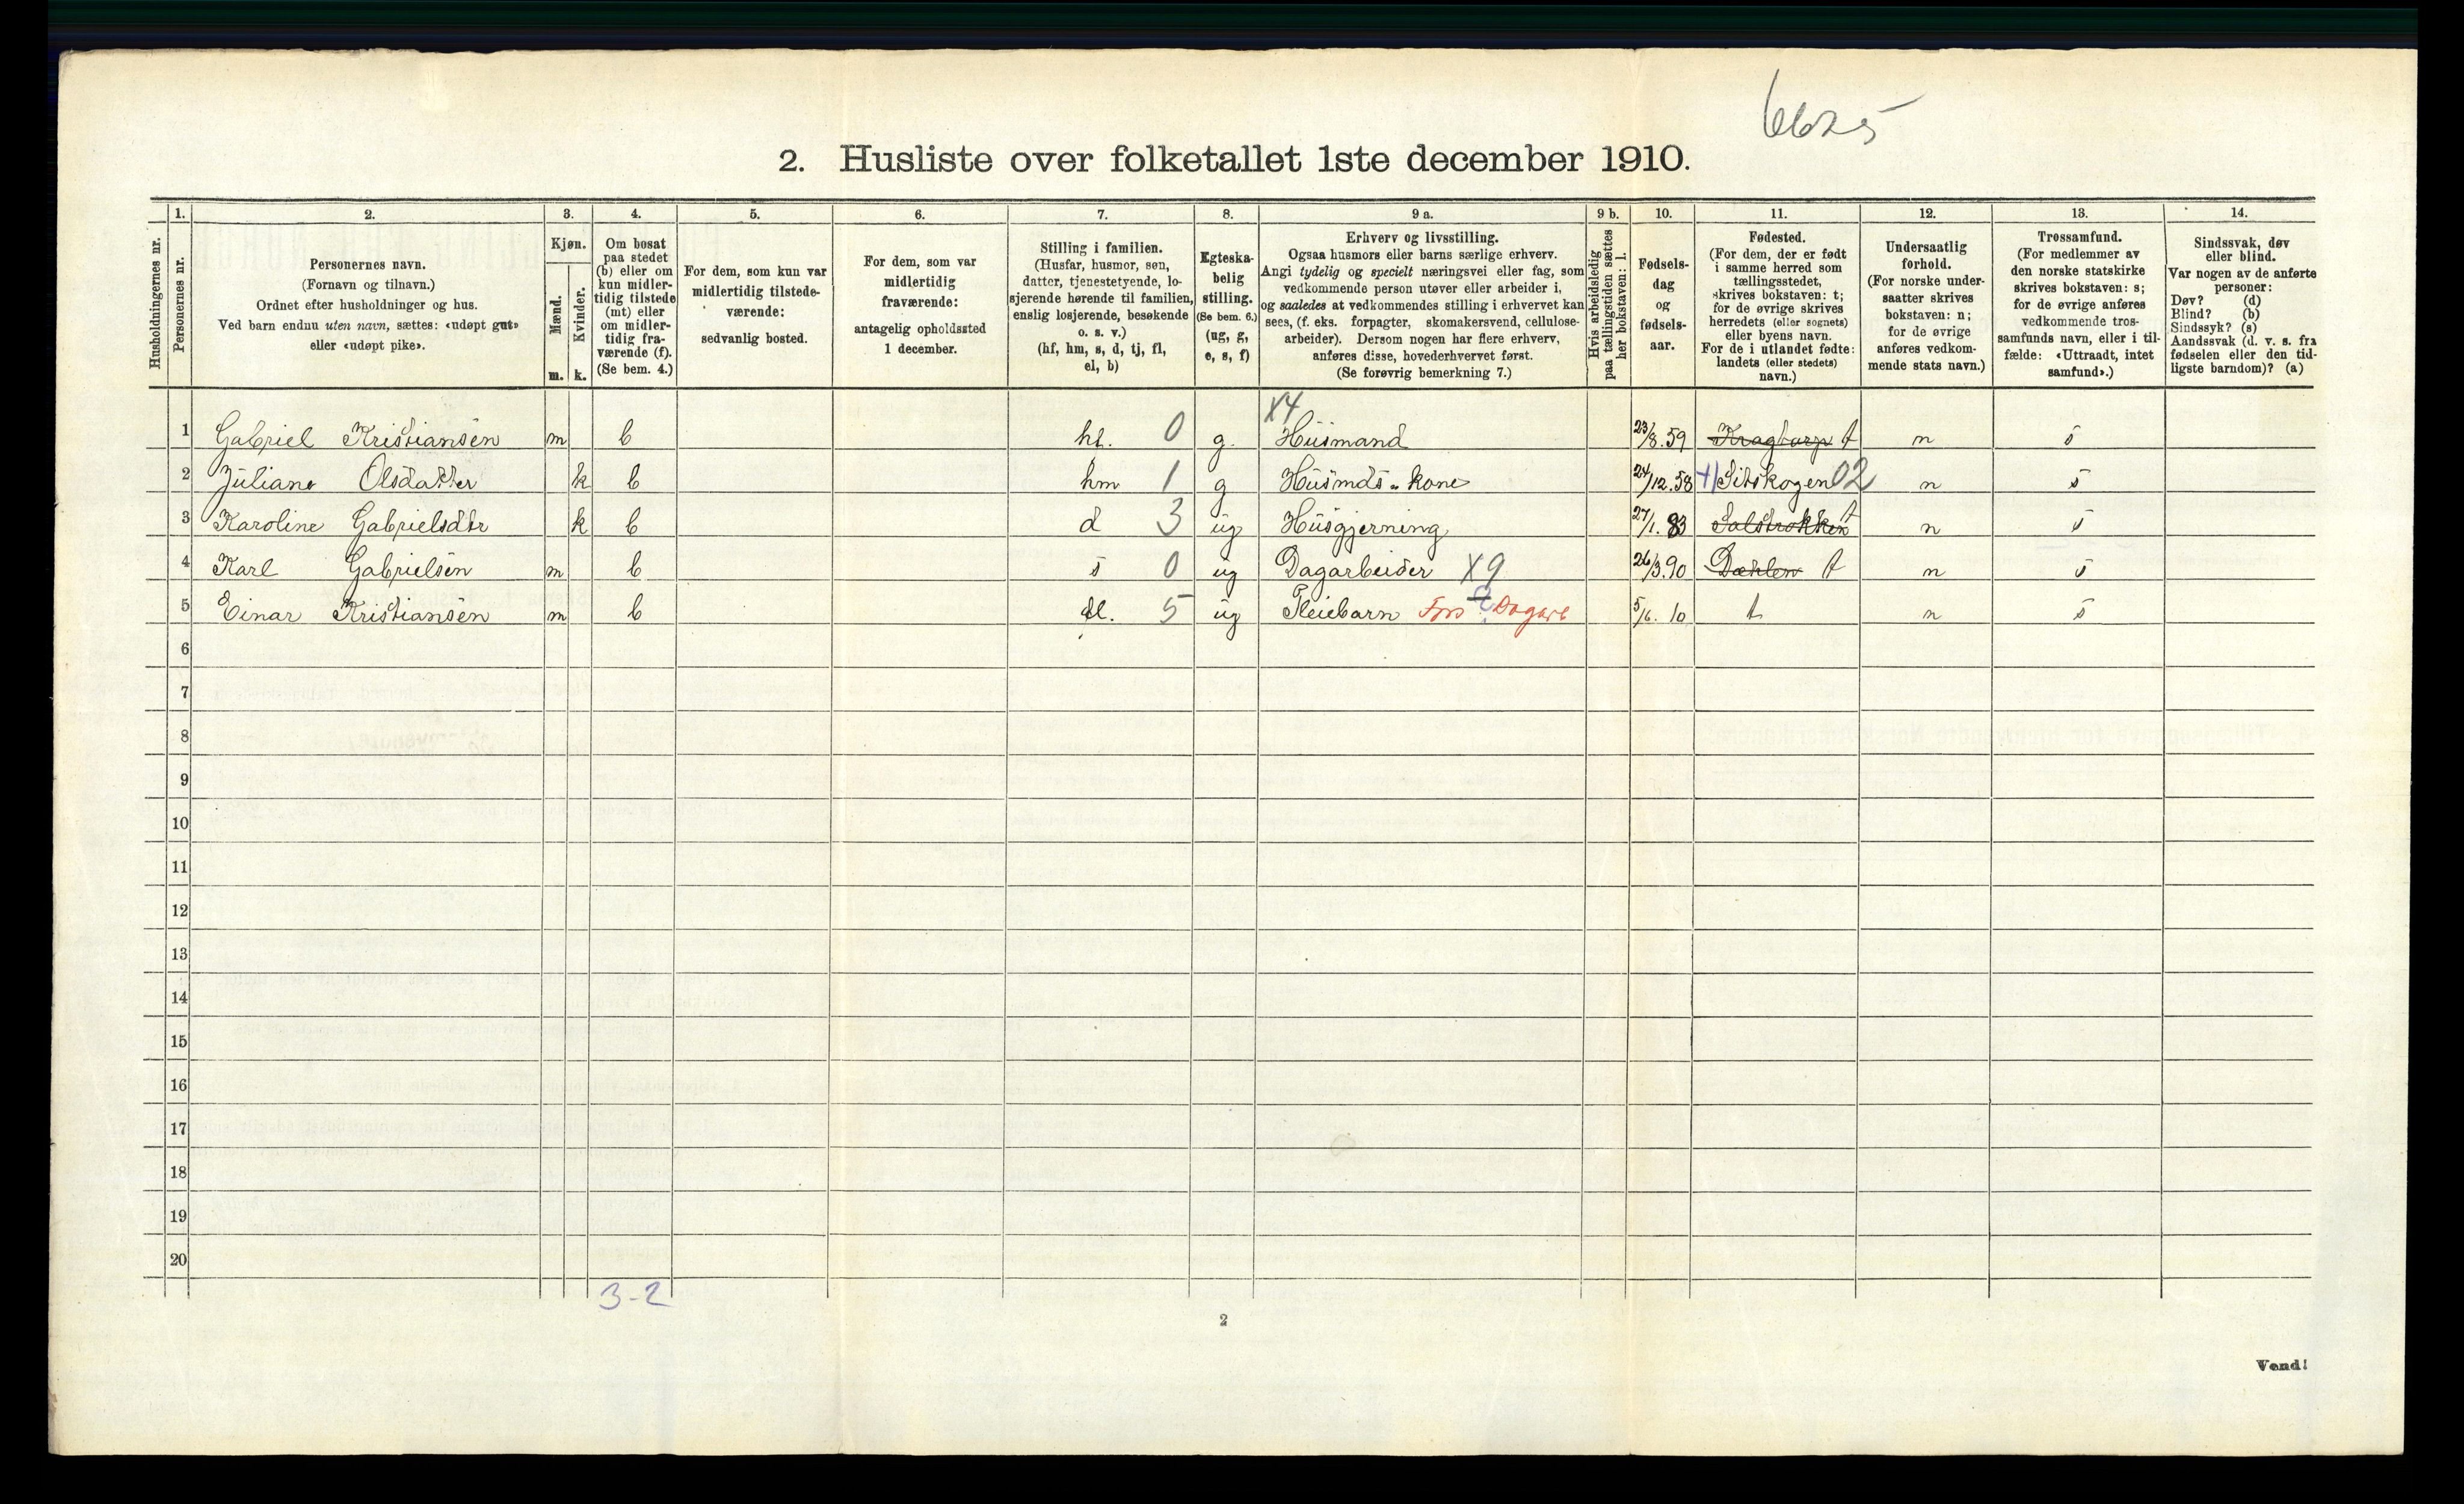 6625
2. Husliste over folketallet 1ste december 1910.
1. 2. 3. 4. 5. 6. 7. 8. 9 a. 9 b. 10. 11. 12. 13. 14.
Husholdningernes nr.
Personernes nr.
Personernes navn.
(Fornavn og tilnavn.)
Ordnet efter husholdninger og hus.
Ved barn endnu uten navn, sættes: «udøpt gut»
eller «udøpt pike».
Kjøn.
Mænd.
Kvinder.
m. k.
Om bosat
paa stedet
(b) eller om
kun midler-
tidig tilstede
(mt) eller
om midler-
tidig fra-
værende (f).
(Se bem. 4.)
For dem, som kun var
midlertidig tilstede-
værende:
sedvanlig bosted.
For dem, som var
midlertidig
fraværende:
antagelig opholdssted
1 december.
Stilling i familien.
(Husfar, husmor, søn,
datter, tjenestetyende, lo-
sjerende hørende til familien,
enslig losjerende, besøkende
o. s. v.)
(hf, hm, s, d, tj, fl,
el, b)
Egteska-
belig
stilling.
(Se bem. 6.)
(ug, g,
e, s, f)
Erhverv og livsstilling.
Ogsaa husmors eller barns særlige erhverv.
Angi tydelig og specielt næringsvei eller fag, som
vedkommende person utøver eller arbeider i,
og saaledes at vedkommendes stilling i erhvervet kan
sees, (f. eks. forpagter, skomakersvend, cellulose-
arbeider). Dersom nogen har flere erhverv,
anføres disse, hovederhvervet først.
(Se forøvrig bemerkning 7.)
Hvis arbeidsledig
paa tællingstiden sættes
her bokstaven: l.
Fødsels-
dag
og
fødsels-
aar.
Fødested.
(For dem, der er født
i samme herred som
tællingsstedet,
skrives bokstaven: t;
for de øvrige skrives
herredets (eller sognets)
eller byens navn.
For de i utlandet fødte:
landets (eller stedets)
navn.)
Undersaatlig
forhold.
(For norske under-
saatter skrives
bokstaven: n;
for de øvrige
anføres vedkom-
mende stats navn.)
Trossamfund.
(For medlemmer av
den norske statskirke
skrives bokstaven: s;
for de øvrige anføres
vedkommende tros-
samfunds navn, eller i til-
fælde: «Uttraadt, intet
samfund».)
Sindssvak, døv
eller blind.
Var nogen av de anførte
personer:
Døv? (d)
Blind? (b)
Sindssyk? (s)
Aandssvak (d. v. s. fra
fødselen eller den tid-
ligste barndom)? (a)
X4
1 Gabriel Kristiansen m b hf. 0 g. Husmand 23/8.59 t n s
2 Juliane Olsdatter k b hm 1 g Husmds. kone 24/12.58 Sitskogen 02 n s
3 Karoline Gabrielsdtr k b d 3 ug Husgjerning 27/1.83 Salstrokken t n s
4 Karl Gabrielsen m b s 0 ug Dagarbeider X9 26/3.90 Dæhlen t n s
5 Einar Kristiansen m b fl. 5 ug Pleiebarn Fors Dagarb 5/6.10 t n s
6
7
8
9
10
11
12
13
14
15
16
17
18
19
20
3-2
2
Vend!